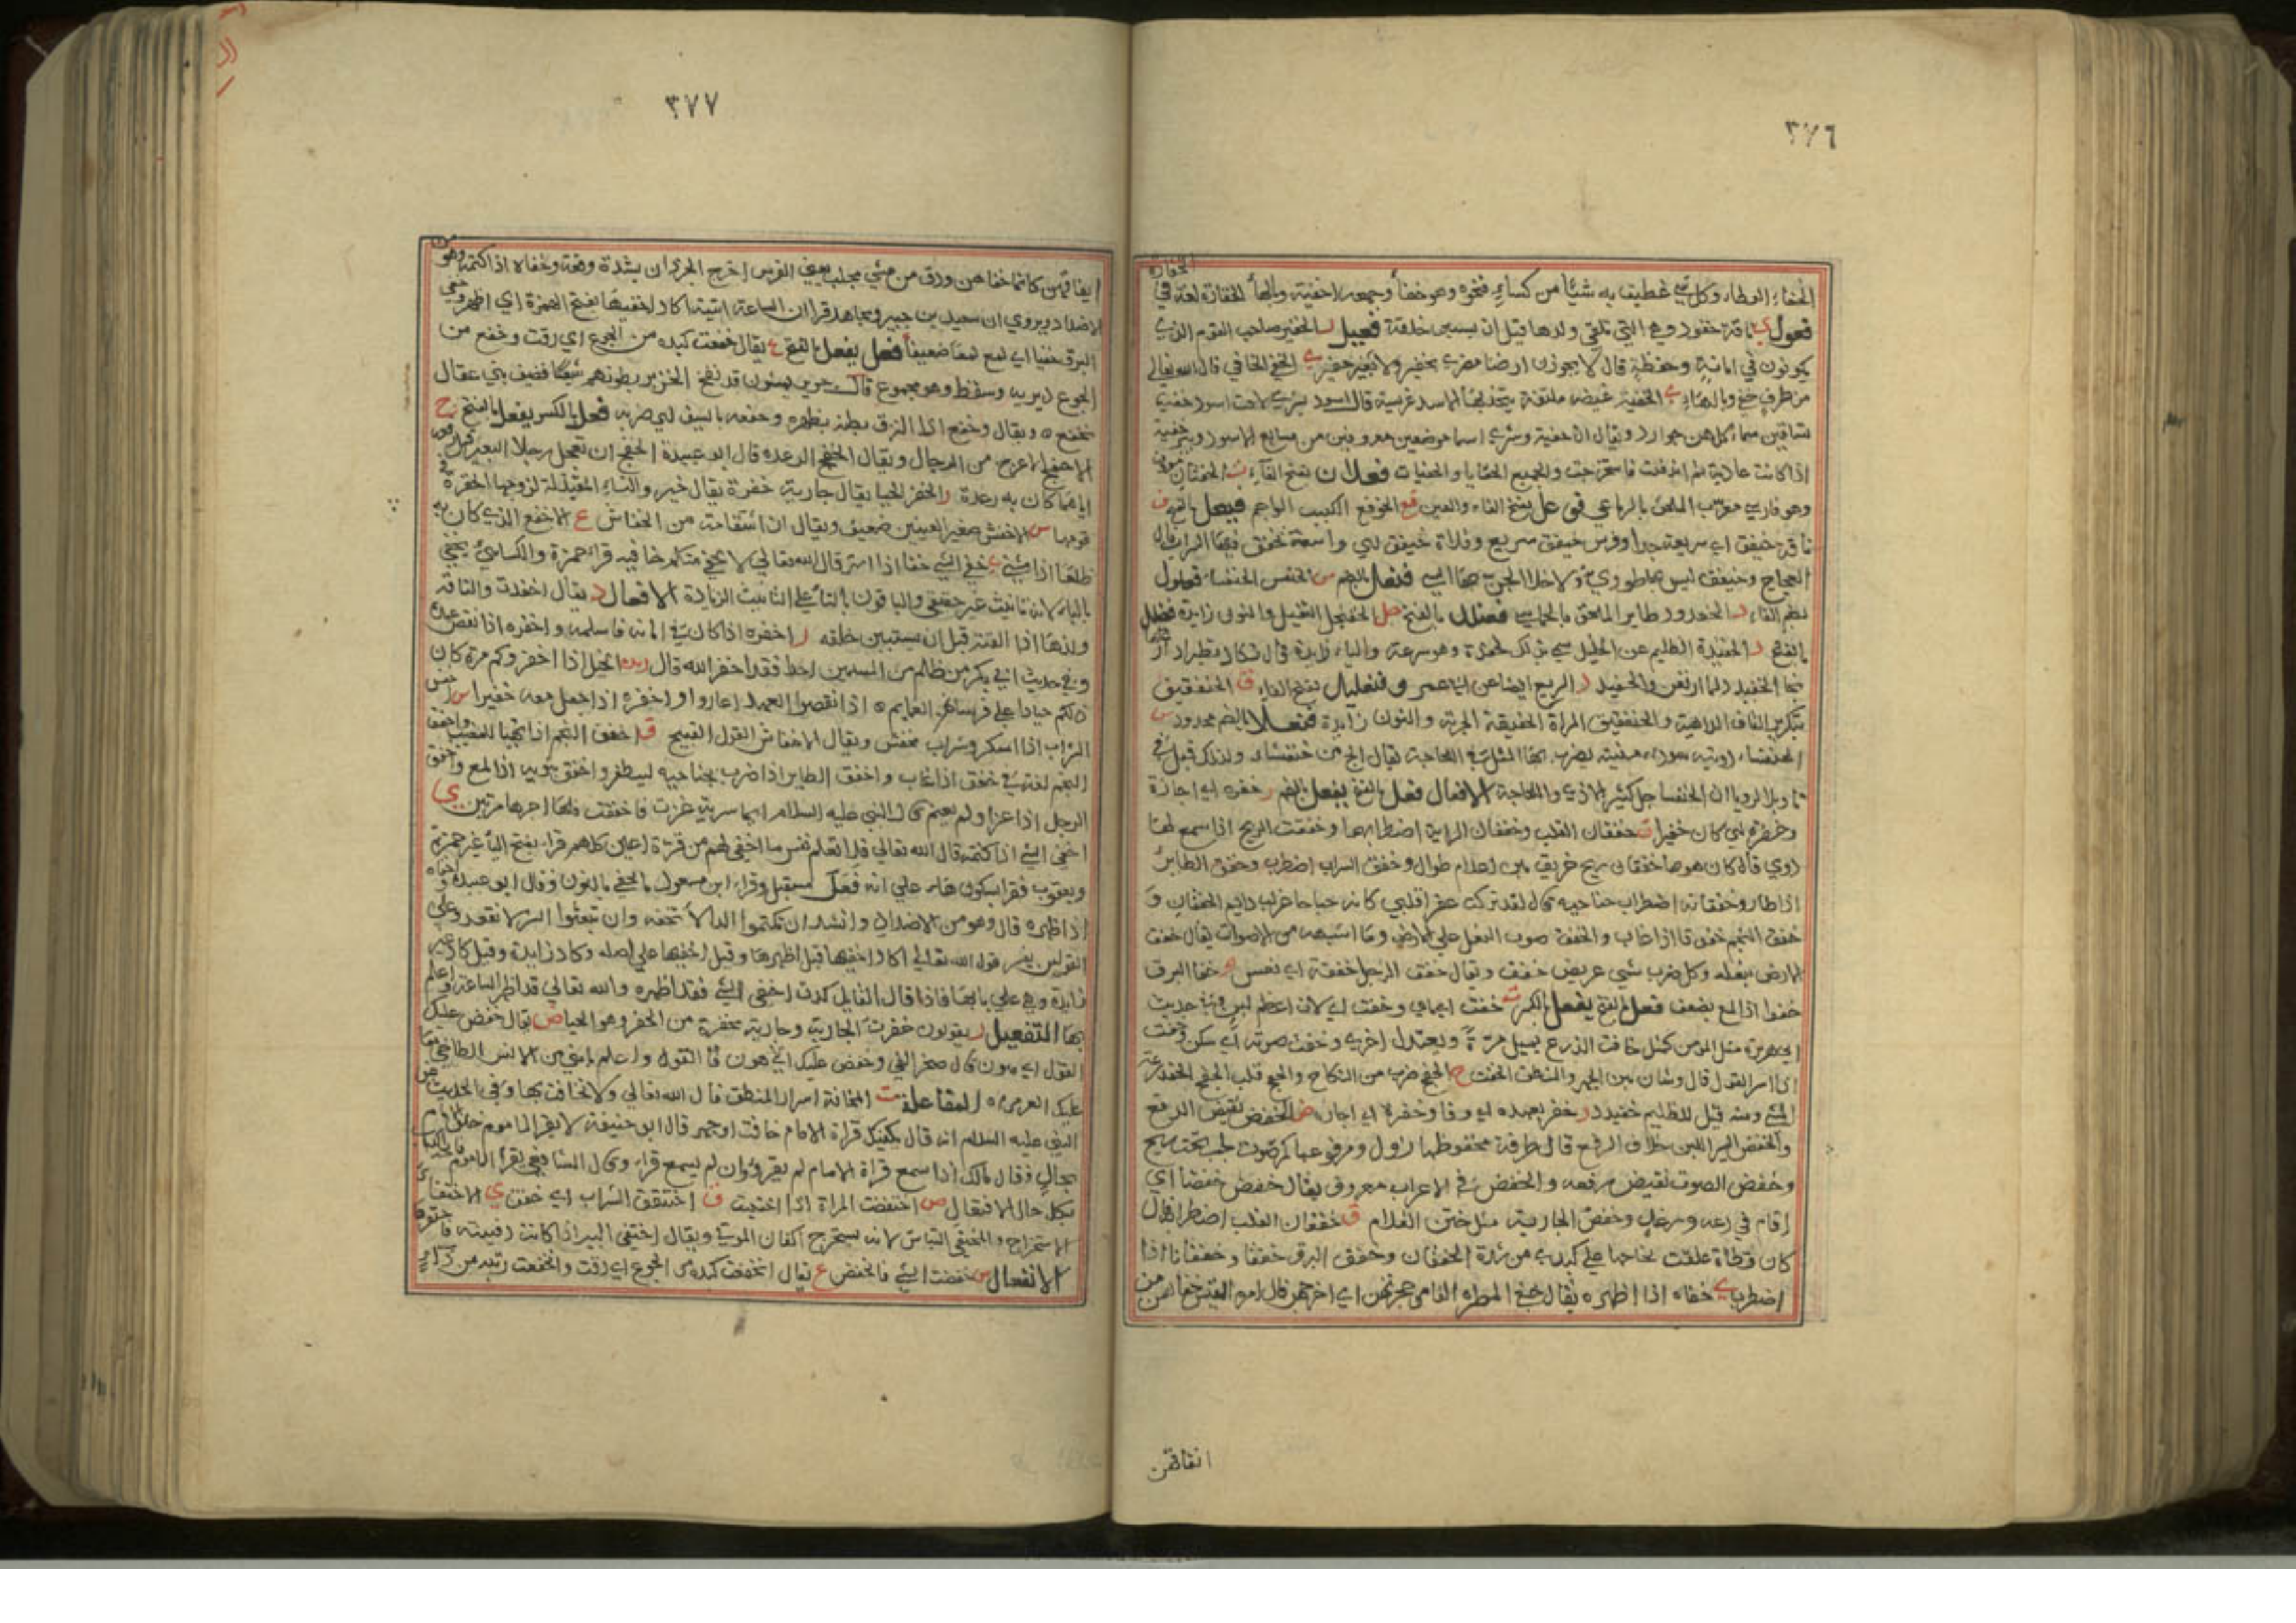 ٣٧٦
الخفاء الغطاء وكل شي غطيت به شيئا من كساء ونحوه وهو خفأ وجمعه اخفية وبالهأ الخفارة لغة في الخفارة
فعول ناقة خفود وهي التي تلقي ولدها قبل ان يستبين خلقه فعيل ر الخفير صاحب القوم الذي
يكونون في امانه وحفظه قال لا يجوزن ارضنا مضري بخفير ولا بغير خفير ي الخفي الخافي قال الله تعالى
من طرف خفي وبالهاء ي الخفية غيضة ملتفة يتخذها الاسد عريسة قال اسود شرى لاقت اسود خفية
تساقين سما كلهن حوارد ويقال ان خفية وشرى اسما موضعين معروفين من مسابع الاسود وبير خفية
اذا كانت عادية ثم اندفنت فاستخرجت والجميع الخفايا والخفيات فعلان بفتح الفآء
وهو فارسي معرب الملحق بالرباعي فوعل بفتح الفاء والعين قع الخوفع الكييب الواجم فيعل بالفتح ق
ناقة خيفق اي سريعة جدا وفرس خيفق سريع وفلاة خيفق اي واسعة تخفق فيها السراب قال
العجاج وخيفق ليس بها طوري ولا خلا الجن بها انسي فنعل بالضم س الخنفس الخنفساء فعلول
بضم الفاء د الخفدود طاير الملحق بالخماسي فعنلل بالفتح جل الخفنجل الثقيل والنون زايدة فعيلل
بالفتح د الخفيدد الظليم عن الخليل سمي بذلك لخفده وهو سرعته والياء زايدة قال
نجا الخفيدد لما ارتعن والخفيدد السريع ايضا عن ابي عمر وفنعليل بفتح الفاء ق الخنفقيق
بتكرير القاف الداهية والخنفقيق المراة الخفيفة الجرية والنون زآيدة فنعلاء بالضم ممدود س
الخنفساء دويبه سوداء منتنة يضرب بها المثل في اللجاجة يقال الج من خنفساء ولذلك قيل في
تاويل الرويا ان الخنفسا رجل كثير الاذي واللجاجة الافعال فعل بالفتح يفعل بالضم ر خفره اي اجازه
وخفره اي كان خفيرا ق خفقان القلب وخفقان الراية اضطرابهما وخفقت الريح اذا سمع لها
دوي قال كان هويها خفقان ريح خريق بين اعلام طوال وخفق السراب اضطرب وخفق الطاير
اذا طار وخفقانه اضطراب جناحيه قال لقد تركت عفرا قلبي كانه جناحا غراب دايم الخفقان و
خفق النجم خفوقا اذا غاب والخفق صوت النعل على الارض وما اشبهه من الاصوات يقال خفق
الارض بنعله وكل ضرب بشي عريض خفق ويقال خفق الرجل خفقة اي نعس و خفا البرق
خفوا اذا لمع بضعف فعل بالفتح يفعل بالكسر ت خفت
ابي هريرة مثل المومن كمثل خافت الزرع يميل مرة ويعتدل اخري وخفت صوته اي سكن وخفت
اذا اسر القول قال وشتان بين الجهر والمنطق الخفت ج الخفج ضرب من النكاح
المشي ومنه قيل للظليم خفيدد ر خفر بعهده اي وفا وخفره اي اجاره ض الخفض نقيض الرفع
والخفض السير اللين خلاف الرفع قال طرفة مخفوضها زول ومرفوعها كمر صوب لجب تحت ريح
وخفض الصوت نقيض رفعه والخفض في الاعراب معروف يقال خفض خفضا اي
اقام في دعة ورغد وخفض الجارية مثل ختن الغلام ق خفقان القلب اضطرابه قال
كان قطاة علقت بجناحها على كبدي من شدة الخفقان وخفق البرق خفقا وخفقانا اذا
اضطرب ي خفاه اذا اظهره يقال خفى المطر الفار من حجرتهن اي اخرجهن قال امرء القيس خفاهن من
انفاقهن
٣٧٧
انفاقهن كانما خفاهن ودق من عشي مجلب يعني الفرس اخرج الجرذان بشدة وقعه وخفاه اذا كتمه وهو من
الاضداد ويروي ان سعيد بن جبير ومجاهد قرا ان الساعة اتية اكاد اخفيها بفتح الهمزة اي اظهر وخفى
البرق خفيا اي لمع لمعا ضعيفا فعل يفعل بالفتح ع يقال خفعت كبده من الجوع اي رقت وخفع من
الجوع اي وسقط وهو مخموع قال جرير يمشون قد نفخ الخزير بطونهم شبعا وضيف بني عقال
يخفع ويقال وخفع اذا الزق بطنه بظهره وخفعه بالسيف اي ضربه فعل بالكسر يفعل بالفتح ج
الاخفج الاعوج من الرجال ويقال الخفج الرعدة قال ابو عبيدة الخفج ان تعجل رجلا البعير قبل رفعه
اياهما كان به رعدة ر الخفر الحيا يقال جارية خفرة يقال خير والنساء المتبذلة لزوجها الخفرة في
قومها س الاخفش صغير العينين ضعيف ويقال ان اشتقاقه من الخفاش ع الاخفع الذي كان به
ظلعا اذا مشى ي خفي الشي خفأ اذا استتر قال الله تعالى لا يخفى منكم خافيه قرا حمزة والكسائي يخفى
بالياء لان تانيث غير حقيقي والباقون بالتأ على التانيث الزيادة الافعال د يقال اخفدت الناقة
ولدها اذا القته قبل ان يستبين خلقه ر اخفره اذا كان في امانه فاسلمه واخفره اذا نقض عهده
وفي حديث ابي بكر من ظلم من المسلمين احدا فقد اخفر الله قال زيد الخيل اذا اخفروكم مرة كان
ذلكم جيادا على فرسانهن العمايم اذا نقضوا العهد اغاروا واخفره اذا جعل معه خفيرا س اخفس
الشراب اذا اسكر وشراب مخفس ويقال الاخفاس القول القبيح ق اخفق النجم اذا تهيا للمغيب واخفق
النجم لغة في خفق اذا غاب واخفق الطاير اذا ضرب بجناحيه ليطير واخفق بثوبه اذا لمع واخفق
الرجل اذا غزا ولم يغنم قال النبي عليه السلام ايما سرية غزت فاخفقت فلها اجرها مرتين ي
اخفى الشي اذا كتمه قال الله تعالى فلا تعلم نفس ما اخفي لهم من قرة اعين كلهم قراء بفتح اليأ غير حمزة
ويعقوب فقرا بسكون على انه فعل مستقبل وقراء ابن مسعود ما نخفي بالنون وقال ابو عبيدة واخفاه
اذا اظهره قال وهو من الاضداد وانشد ان تكتموا الدا لا نخفه وان تبعثوا الحرب لا نقعد وعلى
القولين يفسر قول الله تعالى اكاد اخفيها قيل اظهرها وقيل اخفيها على اصله وكاد زايدة وقيل كاد غير
زايدة وهي على بابها فاذا قال القايل كدت اخفي الشي فقد اظهره والله تعالى قد اظهر الساعة واعلم
بها التفعيل ر يقولون خفرت الجارية وجارية مخفرة من الخفر وهو الحيا ض يقال خفض عليك
القول اي هون قال صخر الغي وخفض عليك القول واعلم بانني من الانس الطاحي
عليك العرمرم المفاعلة ت المخافتة اسرار المنطق قال الله تعالى ولا تخافت بها وفي الحديث عن
النبي عليه السلام انه قال يكفيك قراة الامام خافت او جهر قال ابو حنيفة لا يقرا الماموم خلف الامام
بحال وقال مالك اذا سمع قراة الامام لم يقرا وان لم يسمع قراء وقال الشافعي يقرأ الماموم فاتحة الكتاب
بكل حال الافتعال ض اختفضت المراة اذا اختتنت ق اختفق السراب اي خفق ي الاختفاء
الاستخراج والمختفي النباش لانه يستخرج اكفان الموتى ويقال اختفى البير اذا كانت دفينة فاحتفرها
الانفعال ض خفضت الشي فانخفض ع يقال انخفعت كبده من الجوع اي رقت وانخفعت ريته من داء